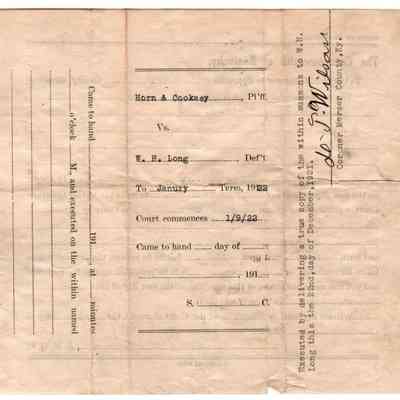 Came to hand 191 , at minutes
o'clock M., and executed on the within named
Horn & Cooksey , Pl'ff.
Vs.
W. H. Long , Def't
To Janury Term, 1922
Court commences 1/9/22
Came to hand day of
, 191
S. C.
Executed by delivering a true copy of the within summons to W.H.
Long this the 22nd,day of December,1921.
Wilson
Coroner Mercer County,Ky.